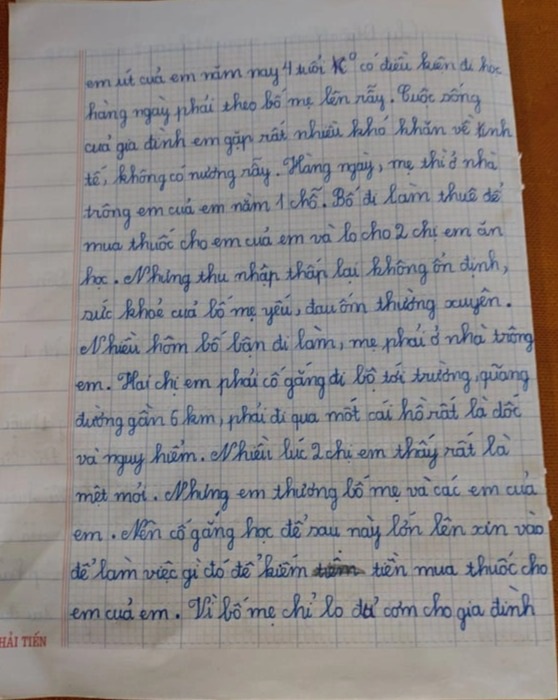 em út của em năm nay 4 tuổi K⁰ có điều kiện đi học
hàng ngày phải theo bố mẹ lên rẫy. Cuộc sống
của gia đình em gặp rất nhiều khó khăn về kinh
tế, không có nương rẫy. Hàng ngày, mẹ thì ở nhà
trông em của em nằm 1 chỗ. Bố đi làm thuê để
mua thuốc cho em của em và lo cho 2 chị em ăn
học. Nhưng thu nhập thấp lại không ổn định,
sức khoẻ của bố mẹ yếu, đau ốm thường xuyên.
Nhiều hôm bố bận đi làm, mẹ phải ở nhà trông
em. Hai chị em phải cố gắng đi bộ tới trường, quãng
đường gần 6 km, phải đi qua một cái hồ rất là dốc
và nguy hiểm. Nhiều lúc 2 chị em thấy rất là
mệt mỏi. Nhưng em thương bố mẹ và các em của
em. Nên cố gắng học để sau này lớn lên xin vào
để làm việc gì đó để kiếm tiền mua thuốc cho
em của em. Vì bố mẹ chỉ lo đủ cơm cho gia đình
HẢI TIẾN